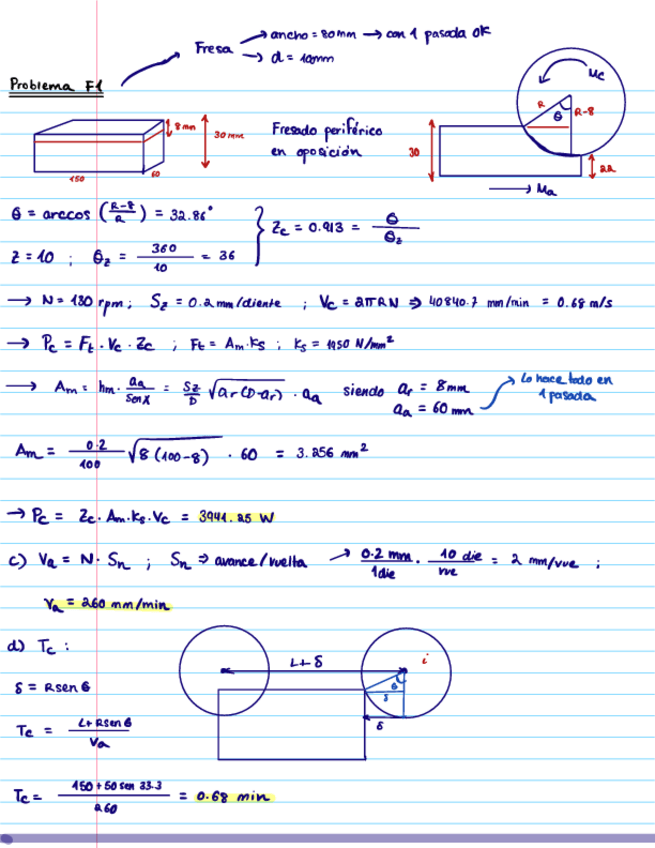 Fresa → ancho = 80mm → con 1 pasada OK
→ d = 10mm
Problema F1
8 mm
30 mm
150
60
Fresado periférico
en oposición
30
Mc
R
θ
R-8
22
→ Ma
θ = arccos (R-8/R) = 32.86°
Zc = 0.913 = θ/θz
z = 10 ; θz = 360/10 = 36
→ N = 130 rpm ; Sz = 0.2 mm/diente ; Vc = 2πRN ⇒ 40840.7 mm/min = 0.68 m/s
→ Pc = Ft · Vc · Zc ; Ft = Am·Ks ; Ks = 1950 N/mm²
→ Am = hm · aa/senX = Sz/D √ar(D-ar) · aa siendo ar = 8mm
aa = 60 mm
Lo hace todo en
1 pasada
Am = 0.2/100 √8(100-8) · 60 = 3.256 mm²
→ Pc = Zc · Am · Ks · Vc = 3941.25 W
c) Va = N · Sn ; Sn ⇒ avance/vuelta → 0.2 mm/1die · 10 die/vue = 2 mm/vue ;
Va = 260 mm/min
d) Tc :
L+δ
i
θ
δ
δ
δ = R sen θ
Tc = L+Rsenθ/Va
Tc = 150+50 sen 33.3/260 = 0.68 min